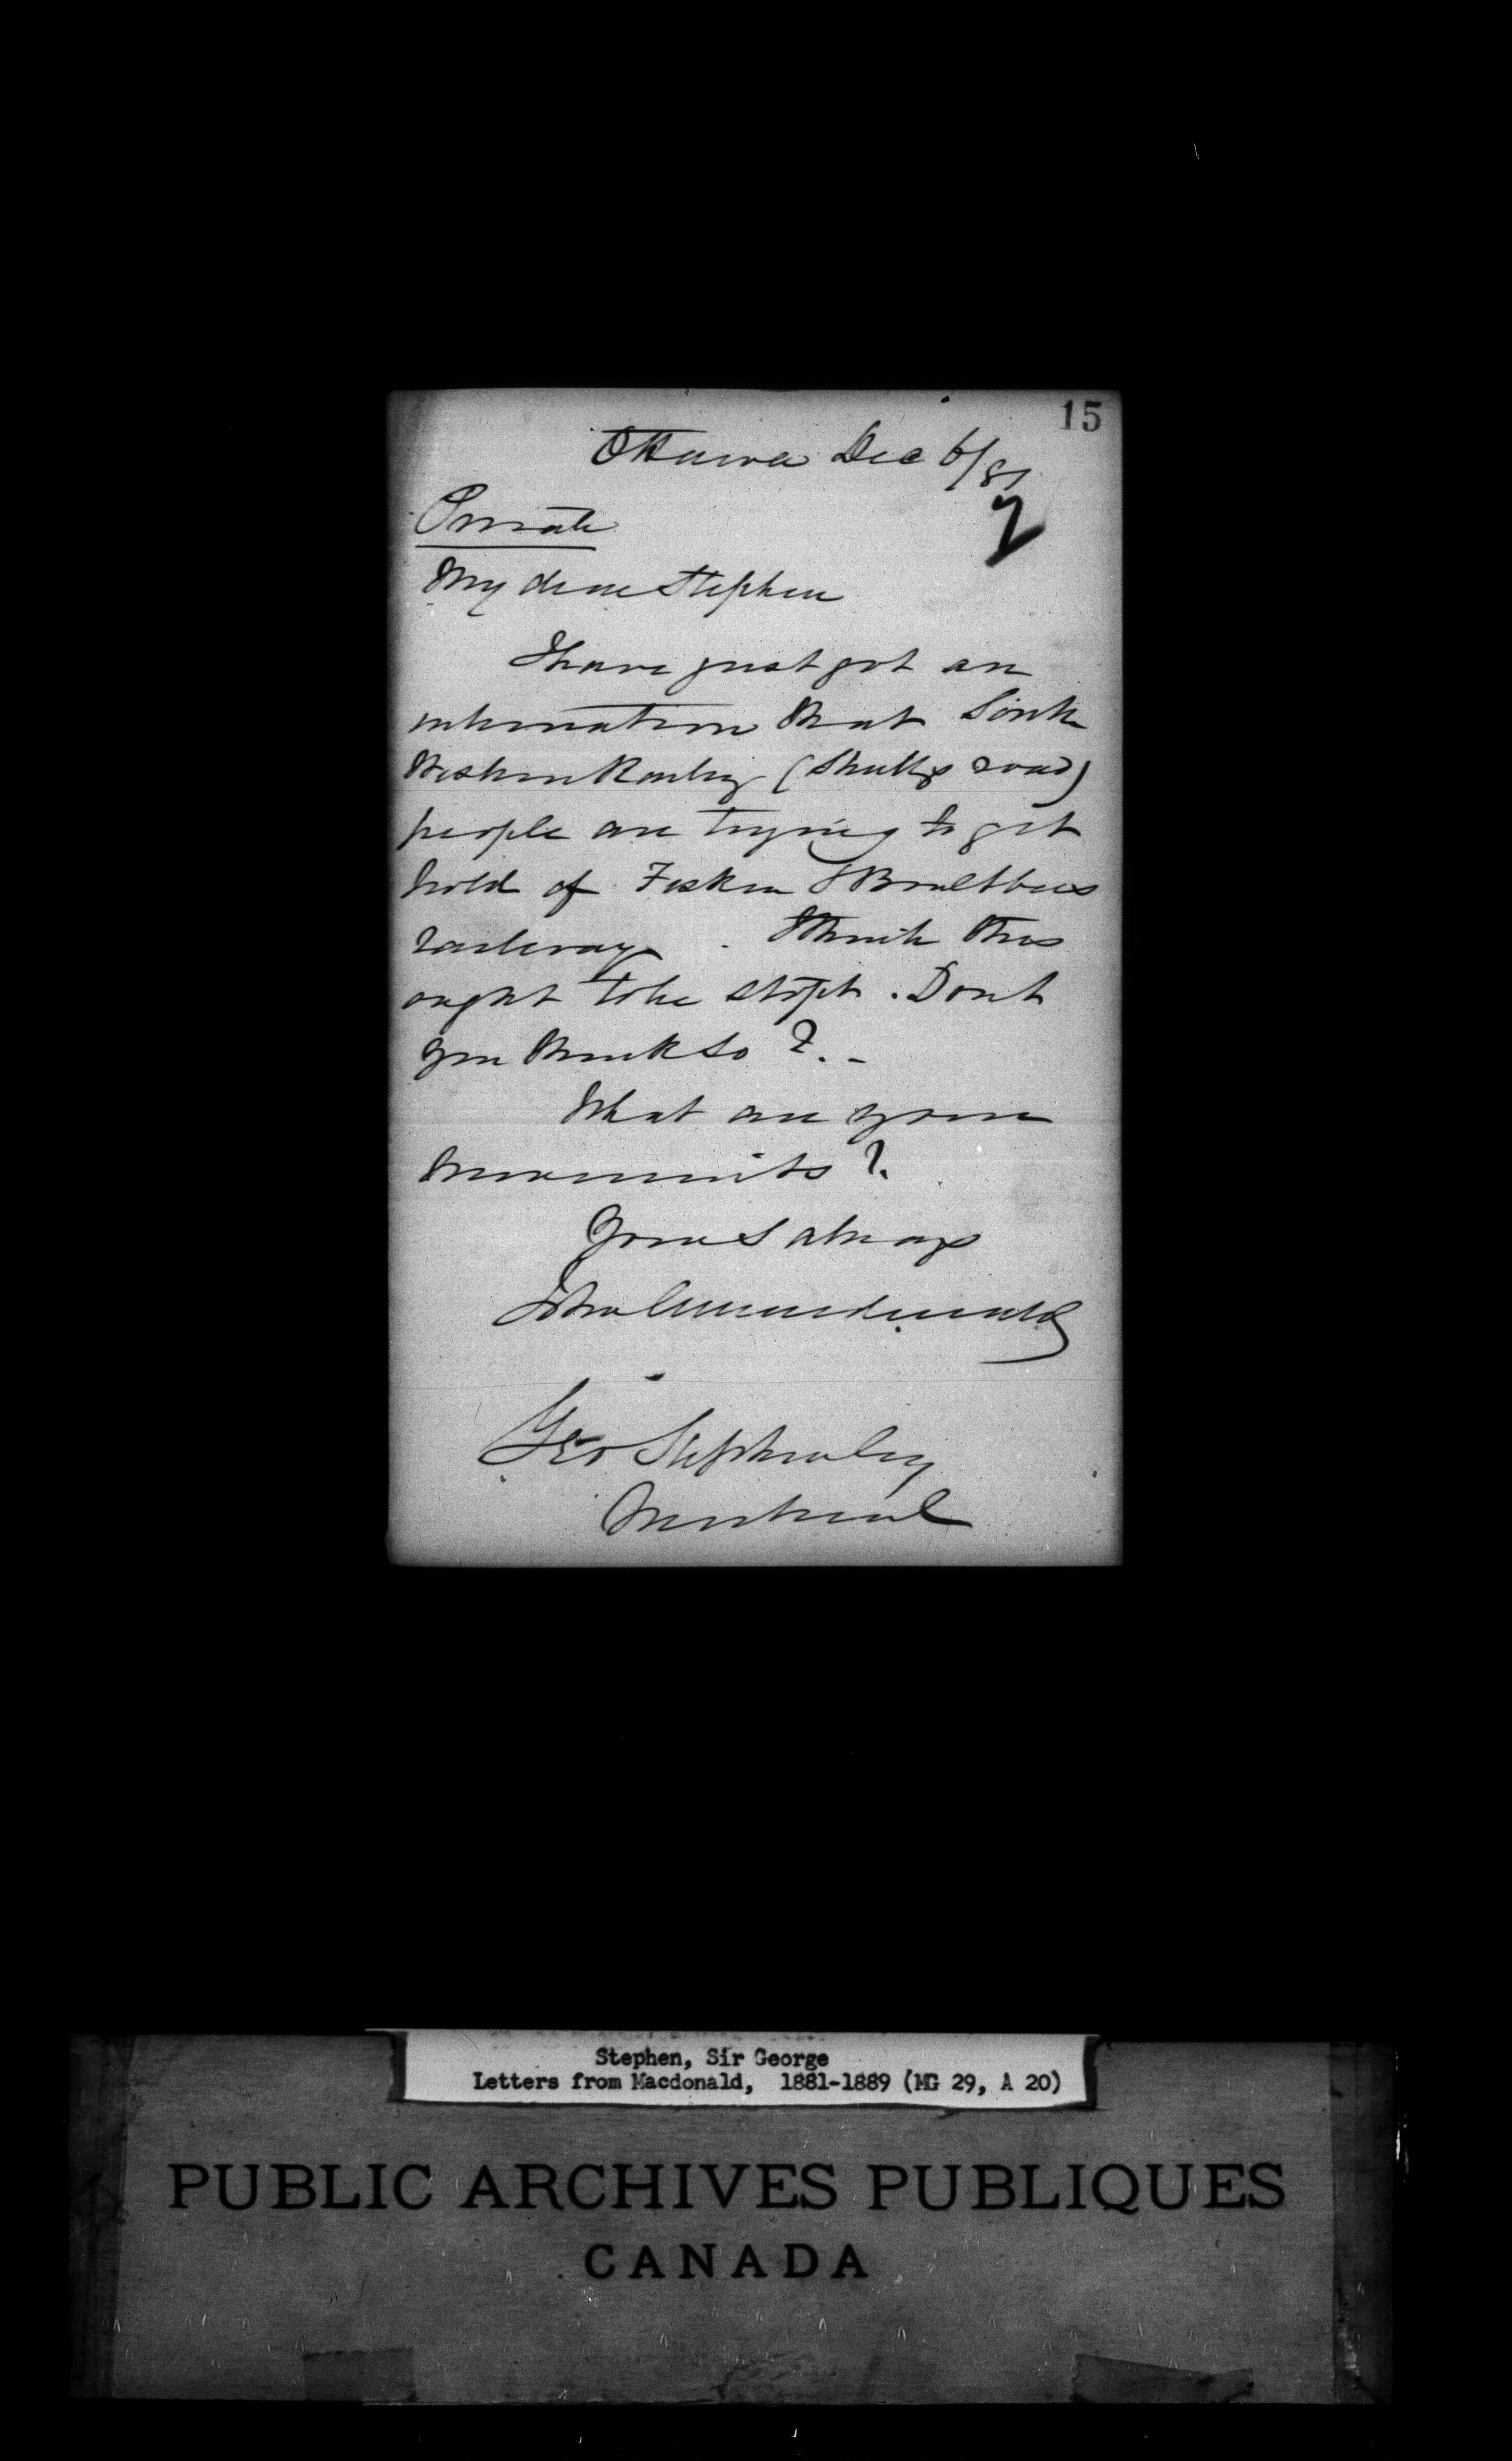 15
Ottawa Dec 6/81
2
Private
My dear Stephen
I have just got an
intimation that South
Western Railwy (Shultz road)
people are trying to get
hold of Fisken &
railway. I think this
ought to be stopt. Dont
you think so?. -
What are your
movements?
Yours always
John A Macdonald
Geo Stephen Esq
Montreal
Stephen, Sir George
Letters from Macdonald, 1881-1889 (MG 29, A 20)
PUBLIC ARCHIVES PUBLIQUES
CANADA